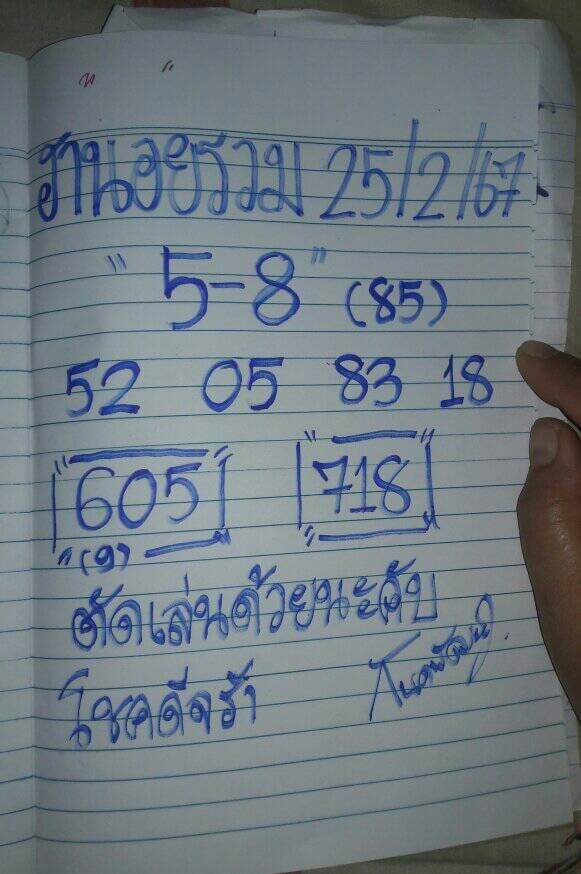 ฮานอยรวม 25/2/67
"5-8" (85)
52 05 83 18
605 718
(9)
ตัดเล่นด้วยนะคับ
โชคดีจร้า